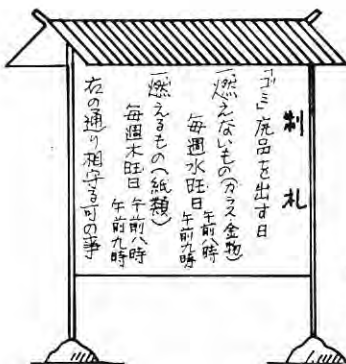 制札
「ゴミ」廃品を出す日
一燃えないもの(ガラス金物)
毎週水旺日 午前八時
午前九時
一燃えるもの(紙類)
毎週木旺日 午前八時
午前九時
右の通り相守る可の事